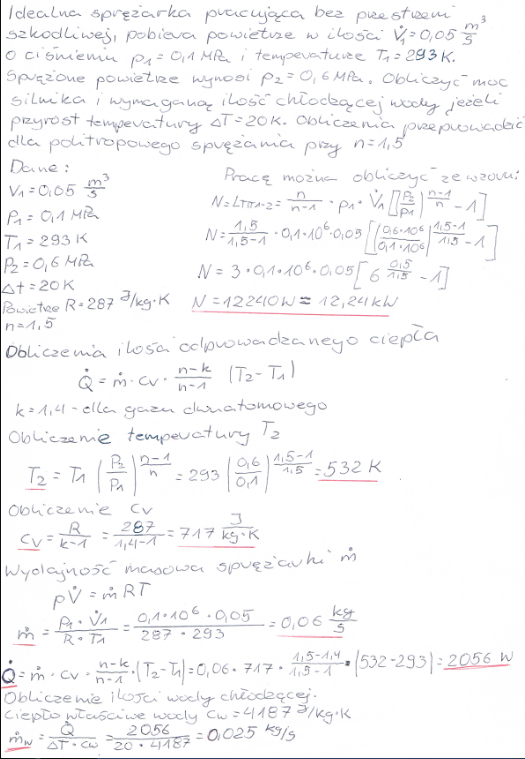 Idealna sprężarka pracująca bez przestrzeni
szkodliwej, pobiera powietrze w ilości V̇₁=0,05 m³/s
o ciśnieniu p₁=0,1 MPa i temperaturze T₁=293K.
Sprężone powietrze wynosi p₂=0,6MPa. Obliczyć moc
silnika i wymaganą ilość chłodzącej wody jeżeli
przyrost temperatury ΔT=20K. Obliczenia przeprowadzić
dla politropowego sprężania przy n=1,5
Dane:
V₁=0,05 m³/s
P₁=0,1 MPa
T₁=293 K
P₂=0,6 MPa
Δt=20K
Powietrze R=287 J/kg·K
n=1,5
Pracę można obliczyć ze wzoru:
N=LTπ1-2= n/(n-1) · p₁ · V̇₁ [(p₂/p₁)^((n-1)/n) -1]
N= 1,5/(1,5-1) · 0,1·10⁶·0,05 [(0,6·10⁶/0,1·10⁶)^((1,5-1)/1,5) -1]
N= 3·0,1·10⁶·0,05[6^(0,5/1,5) -1]
N=12240W = 12,24kW
Obliczenia ilości odprowadzanego ciepła
Q̇= ṁ· cv · (n-k)/(n-1) (T₂-T₁)
k=1,4 - dla gazu dwuatomowego
Obliczenie temperatury T₂
T₂= T₁ (P₂/P₁)^((n-1)/n) = 293 (0,6/0,1)^((1,5-1)/1,5) = 532 K
Obliczenie cv
cv= R/(k-1) = 287/(1,4-1) = 717 J/kg·K
Wydajność masowa sprężarki ṁ
pV̇= ṁRT
ṁ= P₁·V̇₁/R·T₁ = 0,1·10⁶·0,05/287·293 = 0,06 kg/s
Q̇= ṁ· cv · (n-k)/(n-1) ·(T₂-T₁)=0,06·717· (1,5-1,4)/(1,5-1) · (532-293)= 2056 W
Obliczenie ilości wody chłodzącej.
Ciepło właściwe wody cw=4187 J/kg·K
ṁw= Q̇/ΔT·cw = 2056/20·4187 = 0,025 kg/s